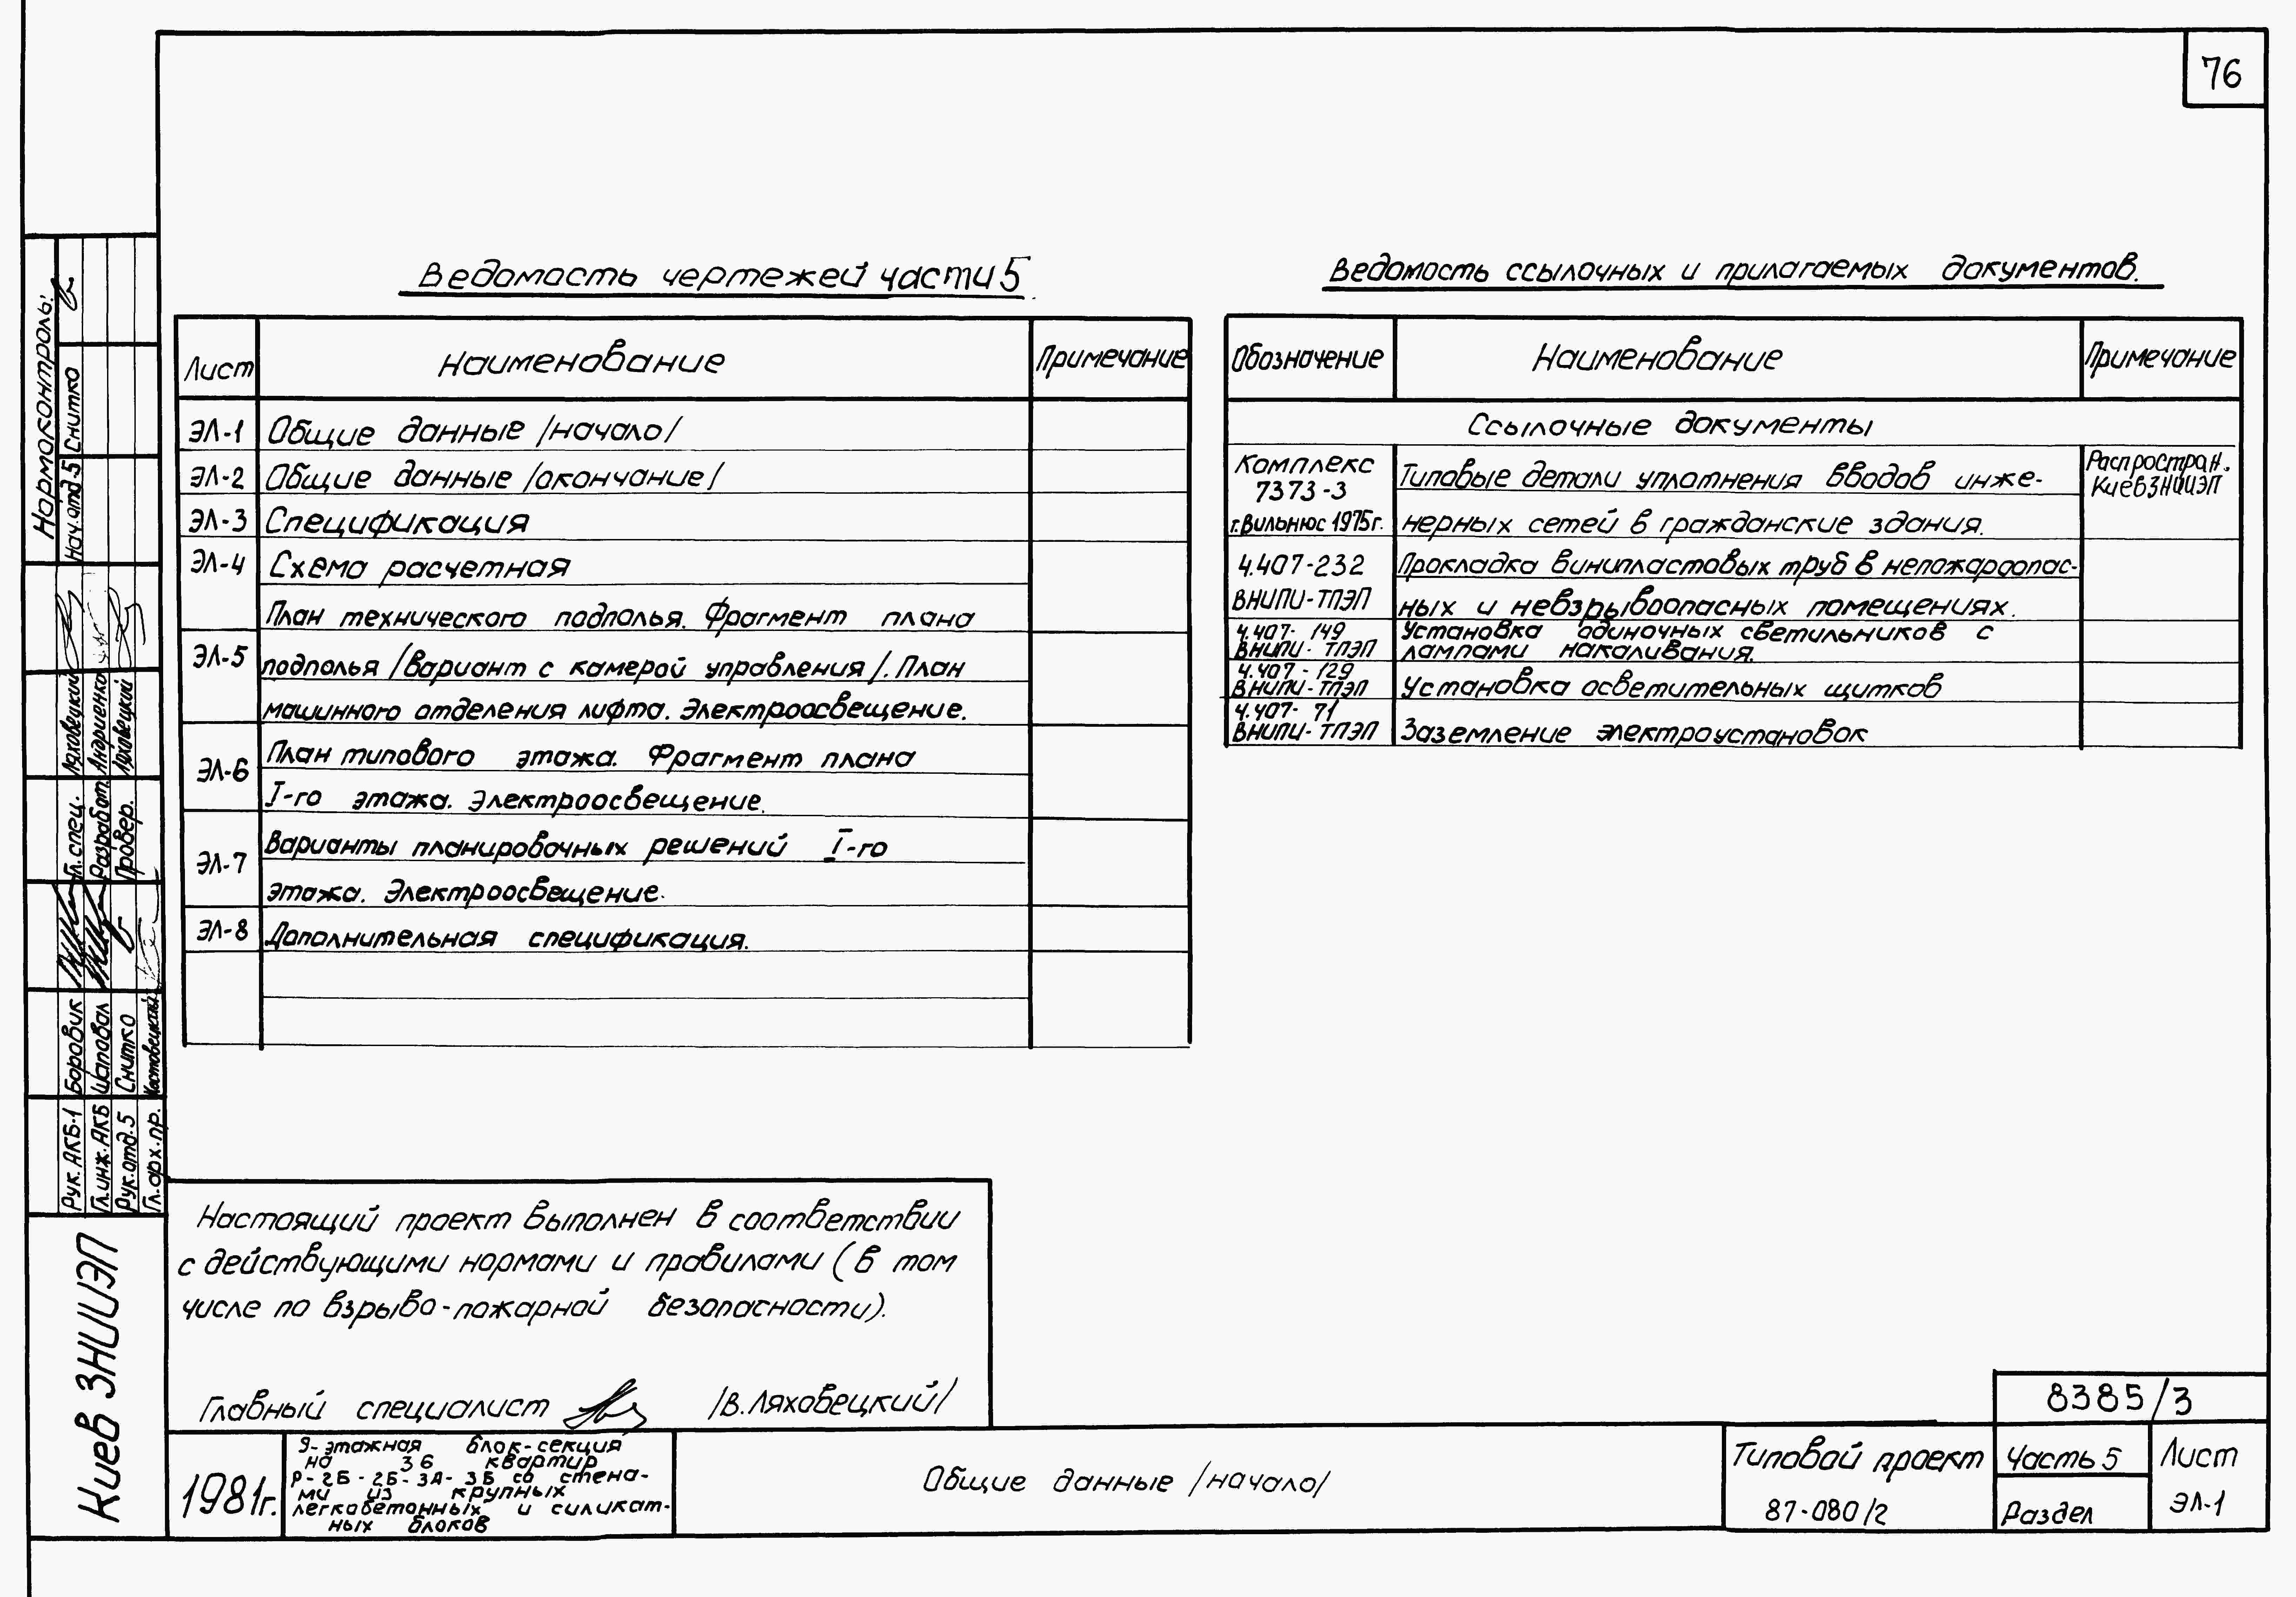 76
Ведомость чертежей части 5
Лист Наименование Примечание
ЭЛ-1 Общие данные /начало/
ЭЛ-2 Общие данные /окончание/
ЭЛ-3 Спецификация
ЭЛ-4 Схема расчетная
План технического подполья. Фрагмент плана
ЭЛ-5 подполья /вариант с камерой управления/. План
машинного отделения лифта. Электроосвещение.
План типового этажа. Фрагмент плана
ЭЛ-6
I-го этажа. Электроосвещение.
Варианты планировочных решений I-го
ЭЛ-7
этажа. Электроосвещение.
ЭЛ-8 Дополнительная спецификация.
Ведомость ссылочных и прилагаемых документов.
Обозначение Наименование Примечание
Ссылочные документы
Комплекс 7373-3 Типовые детали уплотнения вводов инже- Распростран. КиевЗНИИЭП
г.Вильнюс 1975г. нерных сетей в гражданские здания.
4.407-232 Прокладка винипластовых труб в непожароопас-
ВНИПИ-ТПЭП ных и невзрывоопасных помещениях.
4.407-149 Установка одиночных светильников с
ВНИПИ-ТПЭП лампами накаливания.
4.407-129
ВНИПИ-ТПЭП Установка осветительных щитков
4.407-71
ВНИПИ-ТПЭП Заземление электроустановок
Нормоконтроль:
Нач.отд.5 Снитко
Гл.спец. Ляховецкий
Разработ. Андриенко
Провер. Ляховецкий
Рук. АКБ-1 Боровик
Гл.инж. АКБ Шаповал
Рук.отд.5 Снитко
Гл.арх.пр.
Киев ЗНИИЭП
Настоящий проект выполнен в соответствии
с действующими нормами и правилами (в том
числе по взрыво-пожарной безопасности).
Главный специалист /В.Ляховецкий/
1981г.
9-этажная блок-секция
на 36 квартир
Р-2Б-2Б-3А-3Б со стена-
ми из крупных
легкобетонных и силикат-
ных блоков
Общие данные /начало/
8385/3
Типовой проект
87-080/2
Часть 5
Раздел
Лист
ЭЛ-1